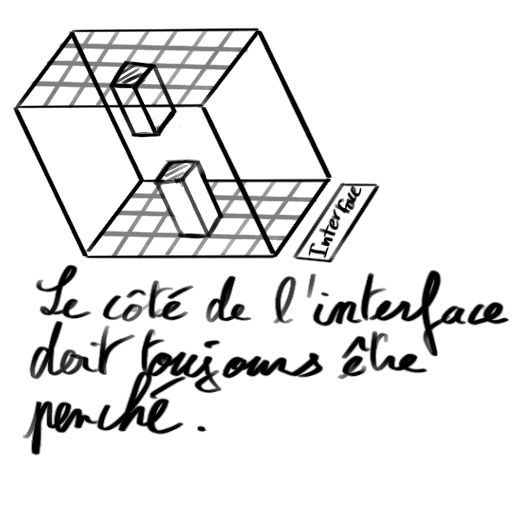 Interface
Le côté de l'interface
doit toujours être
penché.